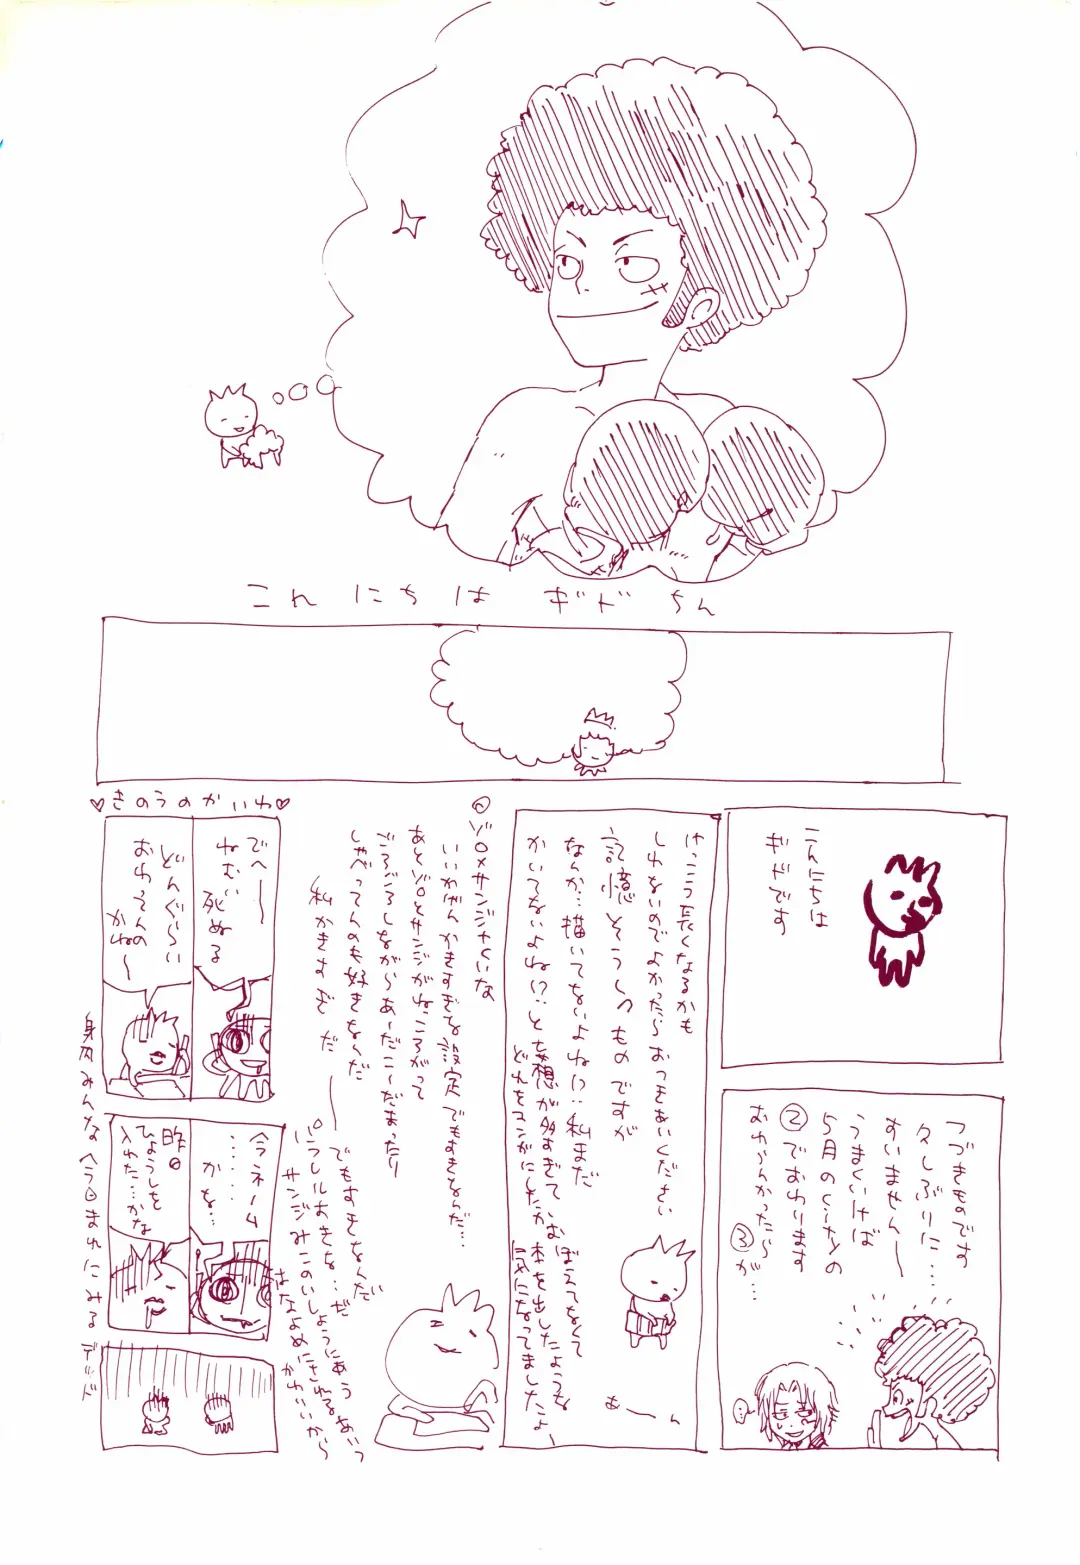 これにちは ギドちん
こんにちは
ギドです
つづきものです
久しぶりに・・・・
すいませんー
うまくいけば
5月のくらいの
②でおわります
おわらんかったら
③が・・・
けっこう長くなるかも
しれないのでよかったらおつきあいください
記憶そうしつものですが
なんか…描いてないよね!?:私まだ
かいてないよね!?:と妄想が多すぎて
どれをマンガにしたか
おぼえてなくて
本を出したような
気になってましたよ〜
あーん
@ゾロ×サンジ×くいな
いいかげんかきすぎな設定でもすきなんだ…
あとゾロとサンジがねころがって
ごろごろしながらあーだこーだまったり
しゃべってんのも好きなんだ
私かきすぎだ——
でもすきなんだ
パラレルおきな…だ
サンジみこのいしょうにあうあいつ
はなよめにされるかわいいから
♡きのうのかいわ♡
でへ〜
ねむい死ぬる
どんぐらい
おわってんの
かね〜
今ネーム
・・・・・かな…
昨日
ひょうしを
入れた…かな
身内みんなヘロヘロまれにみるデッド